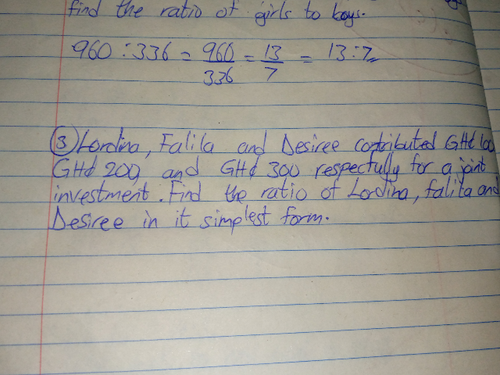 find the ratio of girls to boys.
960 : 336 = 960/336 = 13/7 = 13:7
③ Lordina, Falila and Desiree contributed GH¢ 100
GH¢ 200, and GH¢ 300 respectfully for a joint
investment. Find the ratio of Lordina, falita and
Desiree in it simplest form.